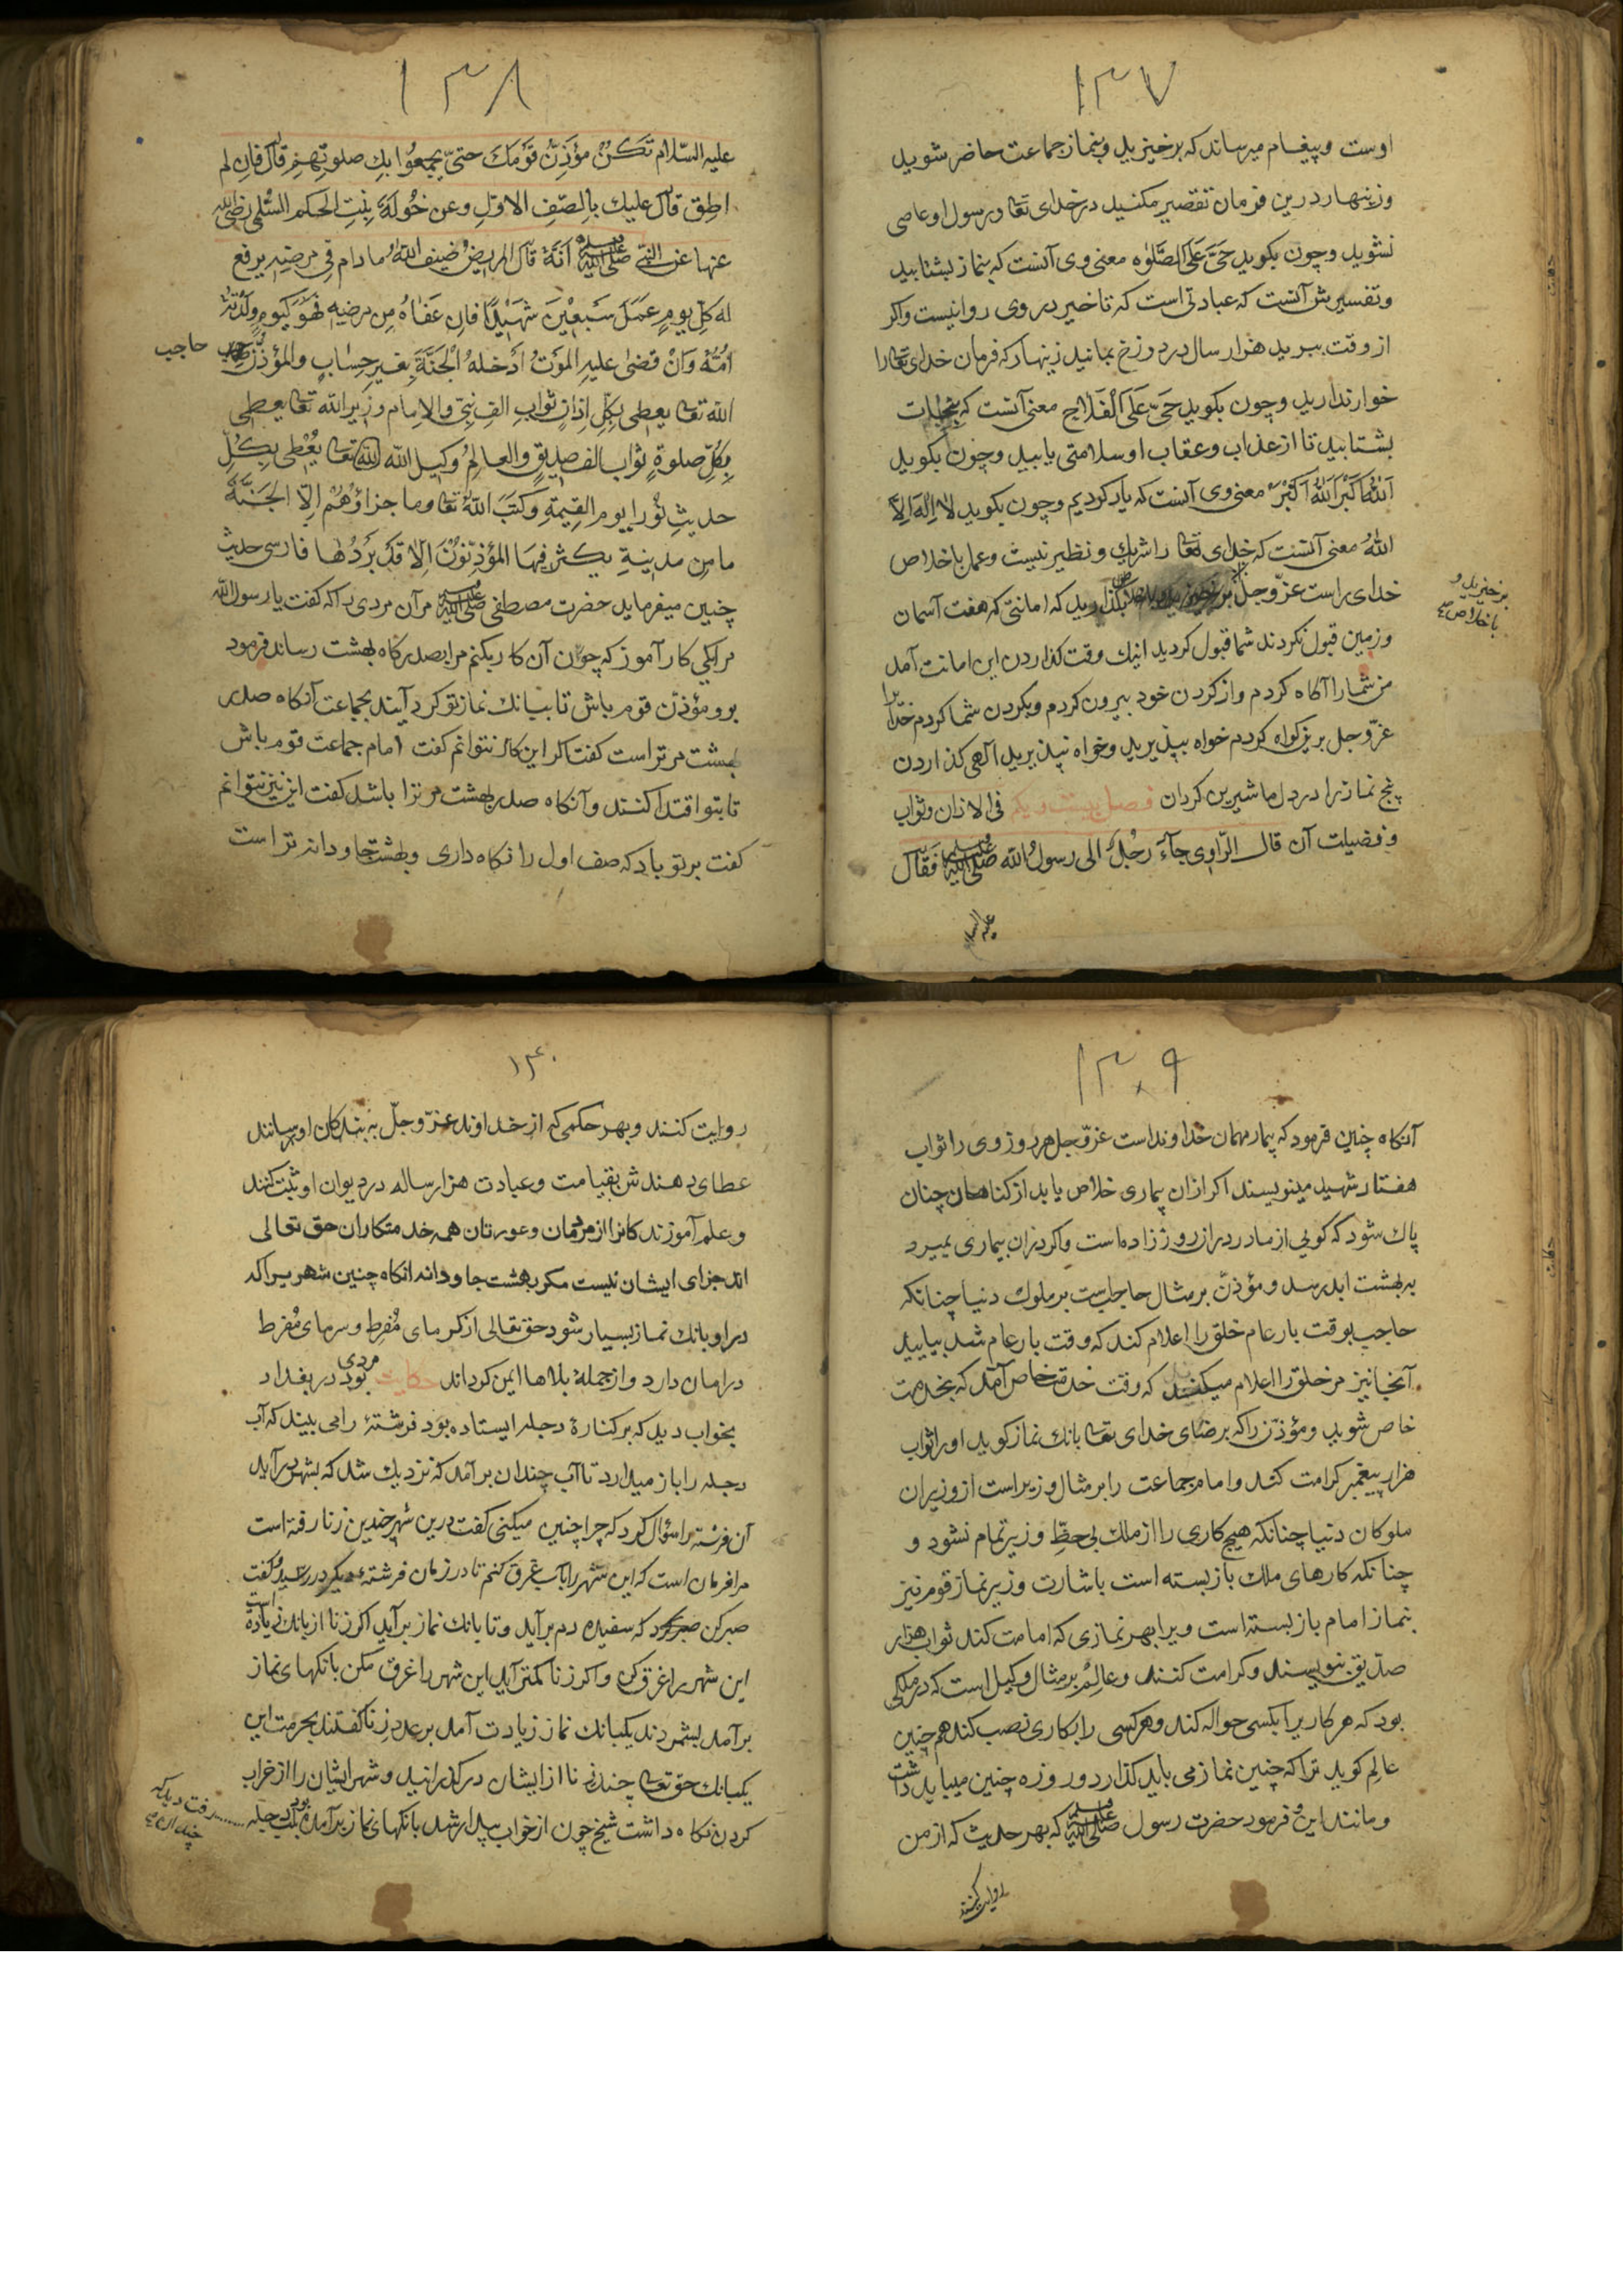 ۱۳۷
اوست و پیغام میرساند که برخیزید و بنماز جماعت حاضر شوید
و زینهار درین فرمان تقصیر مکنید در خدای تعا و رسول او عاصی
نشوید و چون بکوید حَیَّ عَلَی الصَّلوٰه معنی وی آنست که بنماز بشتابید
و تفسیرش آنست که عبادتی است که تاخیر در وی روا نیست واکر
از وقت ببرید هزار سال در دوزخ بمانید زینهار که فرمان خدای تعا را
خوار ندارید و چون بکوید حَیَّ عَلَی الْفَلَاحِ معنی آنست که
بشتابید تا از عذاب و عقاب او سلامتی یابید و چون بکوید
اَللّٰهُ اَکْبَرْ اَللّٰهُ اَکْبَرْ معنی وی آنست که یاد کردیم و چون بکوید لا اِلٰهَ اِلاَّ
اللّٰهُ معنی آنست که خدای تعا را شریك و نظیر نیست و عمل باخلاص
خدای راست عزّوجلّ بکذارید که امانتی که هفت آسمان
برخیزید و
باخلاص صح
و زمین قبول نکردند شما قبول کردید اینك وقت کذاردن این امانت آمد
من شما را آکاه کردم و از کردن خود بیرون کردم و بکردن شما کردم خدا را
عزّوجل برین کواه کردم خواه بپذیرید و خواه نپذیرید الٓهی کذاردن
پنج نماز ترا در دل ما شیرین کردان فصل بیست و یکم فی الاذان و ثواب
و فضیلت آن قال الرّاوی جآءَ رَجُلٌ الی رسولُ اللّه صلی اللّه علیه وسلم فَقَالَ
علیه السلام
۱۳۸
علیه السّلام تَکُنْ مؤذِنَّ قَوْمَكَ حتیّ یجمعُوا بكِ صلوتِهِمْ قَالَ فَاِن لم
اطِق قالَ علیك بِالصّفِ الاوّلِ وعن خَوْلَةَ بِنْتِ الحکم السُّلمی رضی اللّه
عنها عن النّبی صلی اللّه علیه وسلم اَنَّهُ قَالَ المریضُ ضیف اللّهُ ما دام فِی مرضِهِ یرفع
له کلّ یومٍ عَمَلَ سَبعِیْنَ شهِیْدًا فَاِن عَفَاهُ مِن مرضِهِ فَهُوَ کَیومٍ وَلَدَتْهُ
اُمّهُ وَاَنْ قضیٰ علیهِ المَوتُ اَدْخلهُ الْجَنَّةَ بِغیرِ حِسٰابٍ والمؤذّن
حاجب
اللّه تعا یعطی بِکُلِ اِذانٍ ثوابِ الفِ نَبِیٍّ والاِمام وزیر اللّه تعا یعطِی
بِکُلّ صلوةٍ ثواب الف صدیقٍ والعالِمُ وکیل اللّه تعا یُعْطِی بِکُلّ
حدیثٍ نورا یوم القِیمَةِ وَکَتَبَ اللّهُ تعا وما جزاؤُهُمْ اِلّا الْجَنَّةُ
ما مِن مدینةٍ یکثر فِیهَا المؤذِّنُوْنَ اِلّا قَلَّ بَرْدُهَا فارسی حدیث
چنین میفرماید حضرت مصطفی صلی اللّه علیه وسلم مر آن مردی را که کفت یا رسول اللّه
مرا یکی کار آموز که چون آن کار بکنم مرا بصدر کاه بهشت رساند فرمود
برو مؤذّن قوم باش تا ببانك نماز تو کرد آیند بجماعت آنکاه صدر
بهشت مر تراست کفت اکر این کار نتوانم کفت امام جماعت قوم باش
تا بتو اقتدا کنند و آنکاه صدر بهشت مر ترا باشد کفت این نیز نتوانم
کفت بر تو باد که صف اول را نکاه داری و بهشت جاودانه تراست
۱۳۹
آنکاه چنین فرمود که بیمار مهمان خداوند است عزّوجل هر دوز وی را ثواب
هفتاد شهید مینویسند اکر ازان بیماری خلاص یابد از کناهان چنان
پاك شود که کویی از مادر دران روز زاده است واکر دران بیماری بمیرد
به بهشت ابد رسد و مؤذّن بر مثال حاجبست بر ملوك دنیا چنانکه
حاجب بوقت بار عام خلق را اعلام کند که وقت بار عام شد بیایید
آنجا نیز مر خلق را اعلام میکند که وقت خدمت خاص آمد که بخدمت
خاص شوید و مؤذّن را که برضای خدای تعا بانك نماز کوید او را ثواب
هزار پیغمبر کرامت کند و امام جماعت را بر مثال وزیر است از وزیران
ملوکان دنیا چنانکه هیچ کاری را از ملك بی حظِّ وزیر تمام نشود و
چنانکه کارهای ملك بازبسته است باشارت وزیر نماز قوم نیز
بنماز امام بازبسته است ویرا بهر نمازی که امامت کند ثواب هزار
صدّیق بنویسند و کرامت کنند و عالِمْ بر مثال وکیل است که در ملکی
بود که هر کار یرا بکسی حواله کند و هر کسی را بکاری نصب کند همچنین
عالِم کوید ترا که چنین نماز می باید کذارد و روزه چنین میباید داشت
و مانند این و فرمود حضرت رسول صلی اللّه علیه وسلم که بهر حدیث که از من
روایت کنند
۱۴۰
روایت کنند و بهر حکمی که از خداوند عزّوجلّ به بندکان او رسانند
عطای دهندش بقیامت و عبادت هزار ساله در دیوان او ثبت کنند
و علم آموزندکانرا از مردمان و عورتان همه خدمتکاران حق تعالی
اند جزای ایشان نیست مکر بهشت جاودانه انکاه چنین شهریرا که
درا و بانك نماز بسیار شود حق تعالی از کرمای مُفرِط و سرمای مُفرط
در امان دارد و از جملهٔ بلاها ایمن کرداند حکایت مردی بود در بغداد
بخواب دید که بر کنارهٔ دجله ایستاده بود فرشتهٔ را می بیند که آب
دجله را باز میدارد تا آب چندان بر آمد که نزدیك شد که بشهر درآید
آن فرشته را سؤال کرد که چرا چنین میکنی کفت درین شهر چندین زنا رفته است
مرا فرمان است که این شهر را بآب غرق کنم تا در زمان فرشتهٔ دیکر در رسید و کفت
صبر کن که سفیده دم برآید و تا بانك نماز برآید اکر زنا از بانك زیاده است
این شهر را غرق کن واکر زنا کمتر آید این شهر را غرق مکن بانکهای نماز
برآمد بشمردند یکبانك نماز زیادت آمد بر عدد زنا کفتند بحرمت این
یکبانك حق تعا چندین زنا از ایشان در کذرانید و شهر ایشان را از خراب
کردن نکاه داشت شیخ چون از خواب بیدار شد بانکهای نماز برآمده بود بلب دجله
رفت دید که